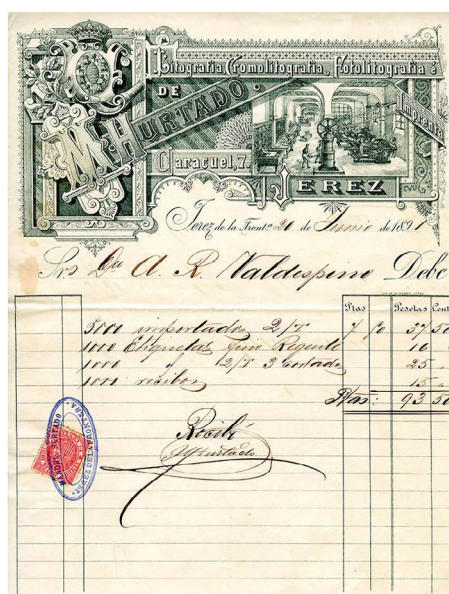 Litografía, Cromolitografía, Fotolitografía é
Imprenta
DE
M. HURTADO.
Caracuel, 7.
JEREZ
Jerez de la Front.ª 20 de Junio de 1891
Srs A. R. Valdespino Debe
Ptas Pesetas Cent
5000 2/T 7 50 37 50
1000 Etiquetas fino Regente 16
1000 12/T 3 25
1000 recibos 15
Ptas: 93 50
Recibí
MHurtado
MANUEL HURTADO
JEREZ DE LA FRONTERA